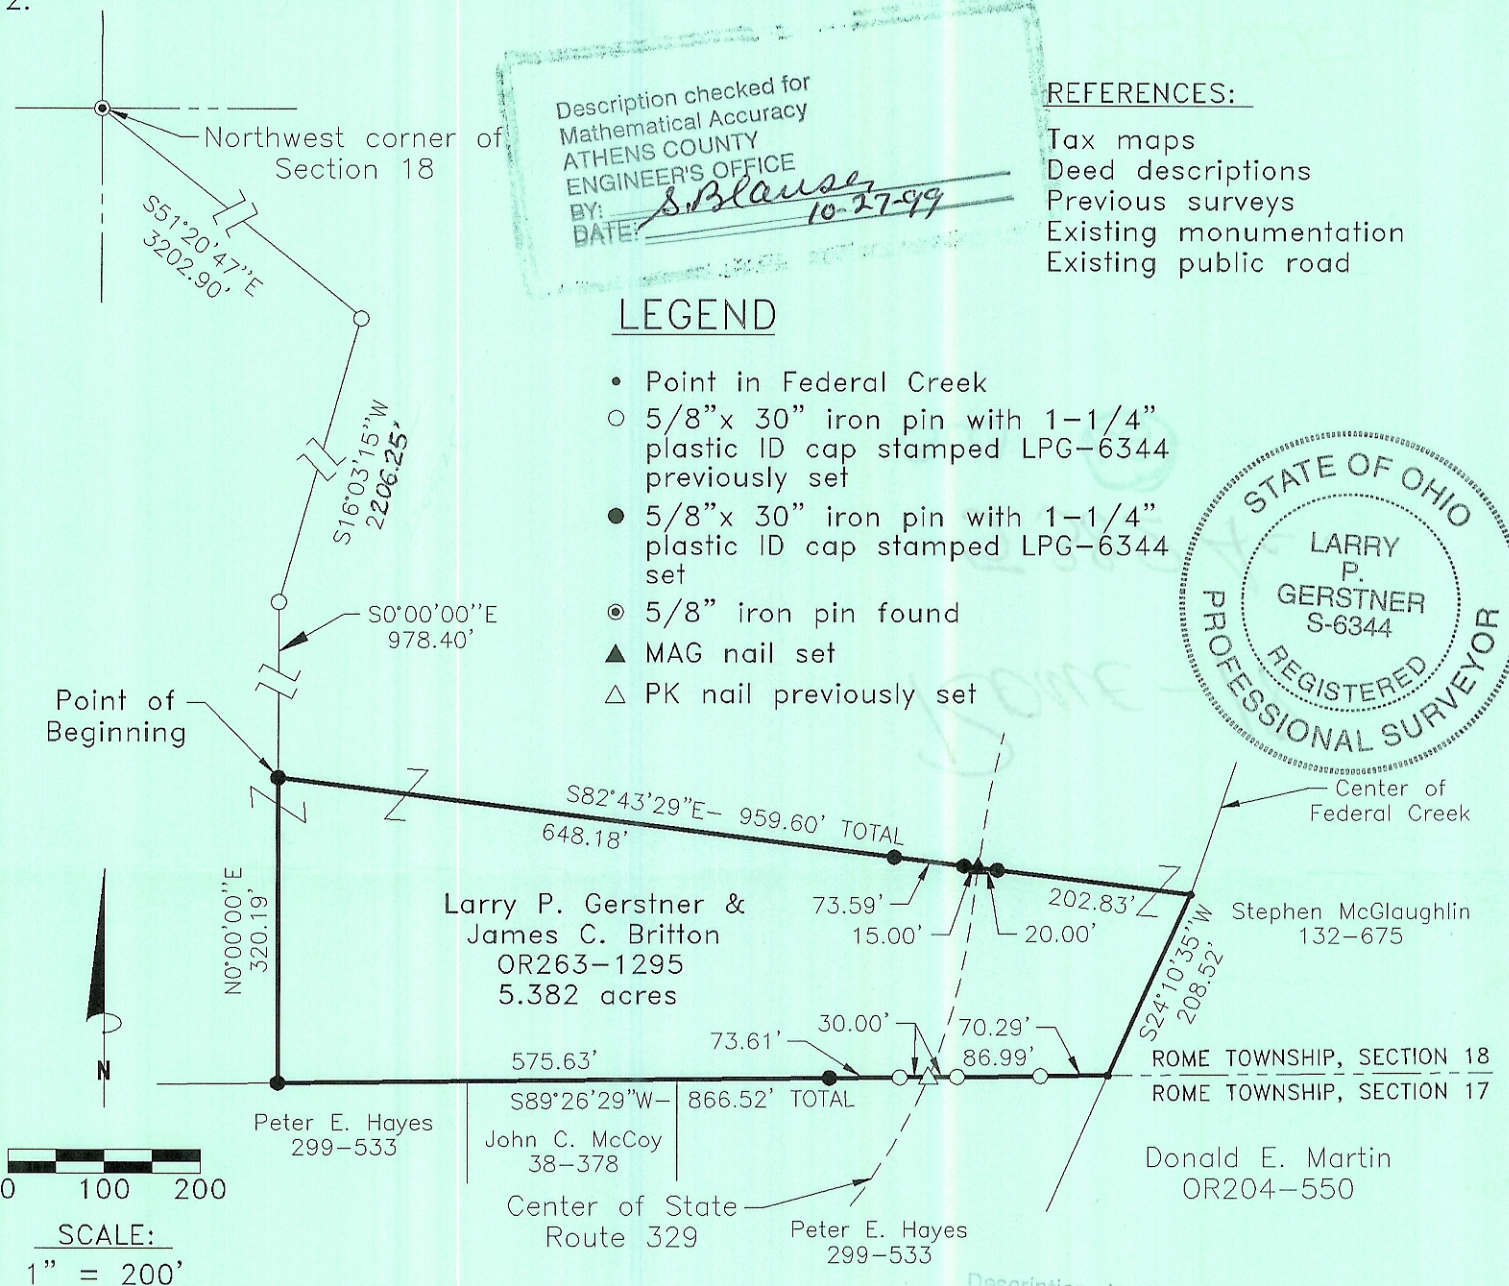 2.
Northwest corner of
Section 18
S51°20'47"E
3202.90'
S16°03'15"W
2206.25'
S0°00'00"E
978.40'
Point of
Beginning
Description checked for
Mathematical Accuracy
ATHENS COUNTY
ENGINEER'S OFFICE
BY: S. Blauser
DATE: 10-27-99
REFERENCES:
Tax maps
Deed descriptions
Previous surveys
Existing monumentation
Existing public road
LEGEND
Point in Federal Creek
5/8"x 30" iron pin with 1-1/4"
plastic ID cap stamped LPG-6344
previously set
5/8"x 30" iron pin with 1-1/4"
plastic ID cap stamped LPG-6344
set
5/8" iron pin found
MAG nail set
PK nail previously set
STATE OF OHIO
LARRY
P.
GERSTNER
S-6344
REGISTERED
PROFESSIONAL SURVEYOR
Center of
Federal Creek
S82°43'29"E- 959.60' TOTAL
648.18'
73.59'
15.00'
20.00'
202.83'
Stephen McGlaughlin
132-675
N0°00'00"E
320.19'
Larry P. Gerstner &
James C. Britton
OR263-1295
5.382 acres
S24°10'35"W
208.52'
575.63'
73.61'
30.00'
86.99'
70.29'
S89°26'29"W- 866.52' TOTAL
ROME TOWNSHIP, SECTION 18
ROME TOWNSHIP, SECTION 17
Peter E. Hayes
299-533
John C. McCoy
38-378
Center of State
Route 329
Peter E. Hayes
299-533
Donald E. Martin
OR204-550
N
0 100 200
SCALE:
1" = 200'